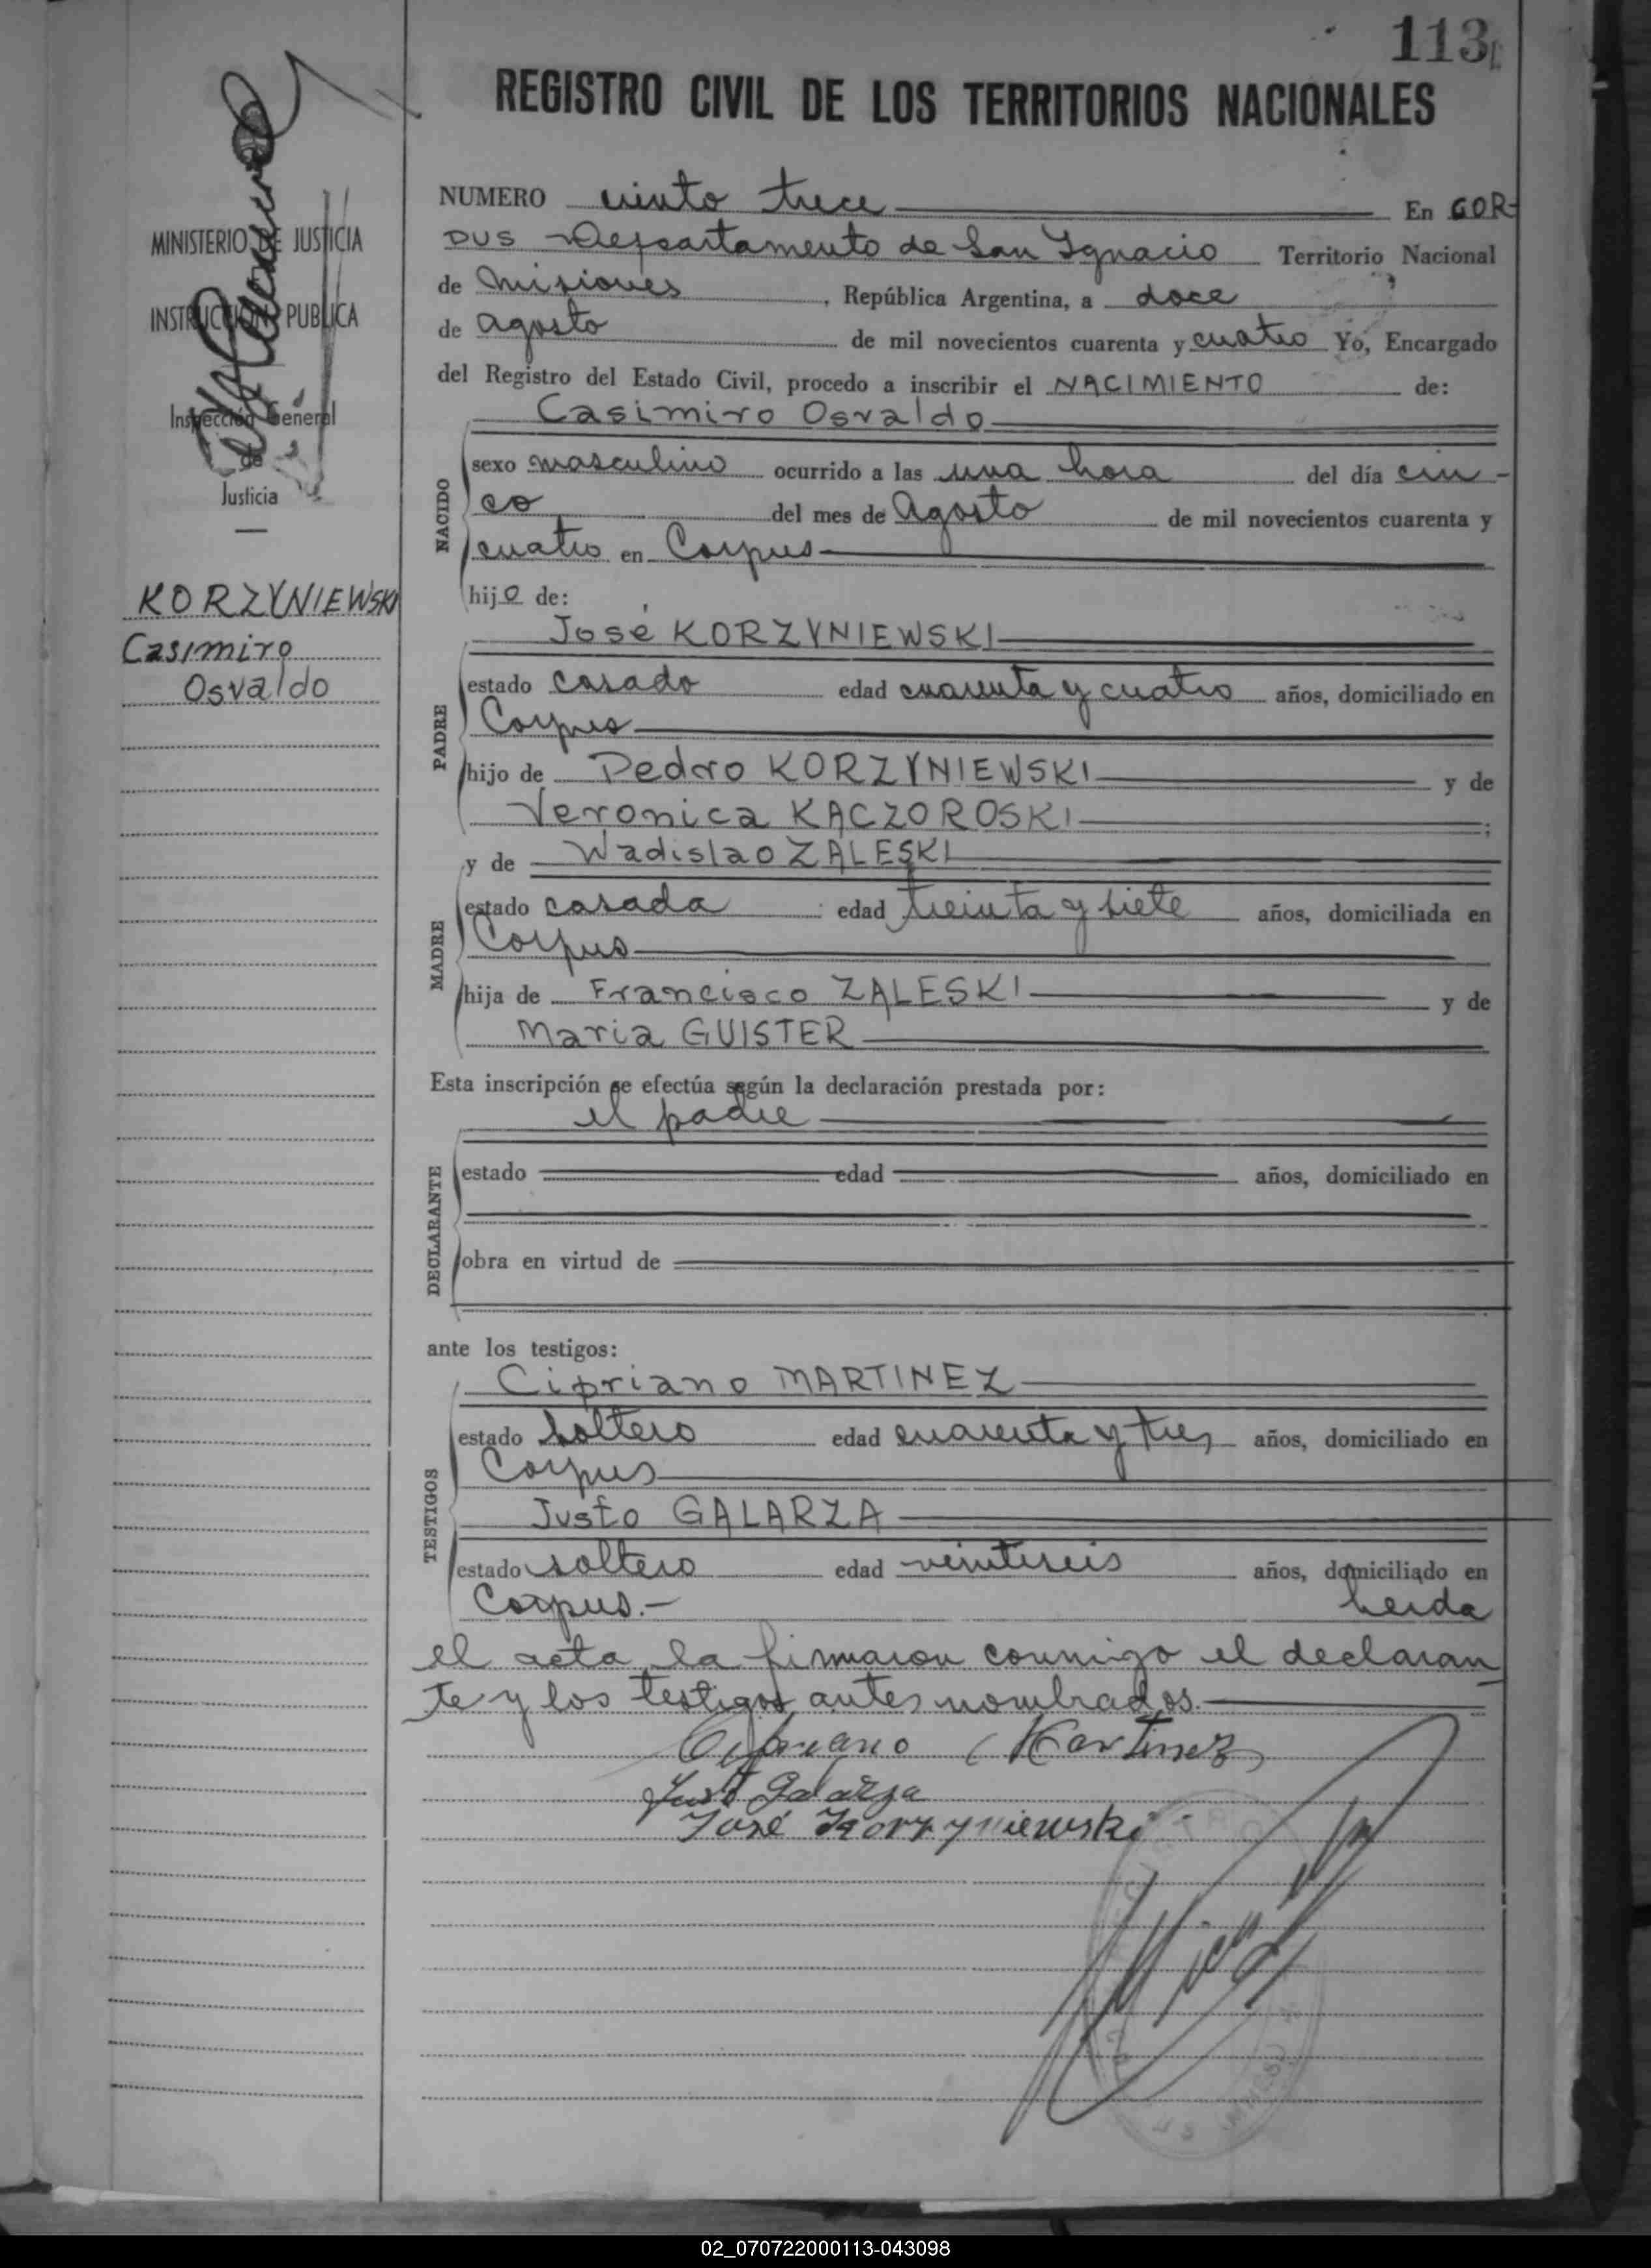 113
REGISTRO CIVIL DE LOS TERRITORIOS NACIONALES
MINISTERIO DE JUSTICIA
INSTRUCCION PUBLICA
Inspección General
de
Justicia
KORZYNIEWSKI
Casimiro
Osvaldo
NUMERO ciento trece En COR-
PUS Departamento de San Ygnacio Territorio Nacional
de Misiones, República Argentina, a doce
de agosto de mil novecientos cuarenta y cuatro Yo, Encargado
del Registro del Estado Civil, procedo a inscribir el NACIMIENTO de:
Casimiro Osvaldo
NACIDO
sexo masculino ocurrido a las una hora del día cin-
co del mes de Agosto de mil novecientos cuarenta y
cuatro en Corpus
hijo de:
José KORZYNIEWSKI
PADRE
estado casado edad cuarenta y cuatro años, domiciliado en
Corpus
hijo de Pedro KORZYNIEWSKI y de
Veronica KACZOROSKI;
y de Wadislao ZALESKI
MADRE
estado casada edad treinta y siete años, domiciliada en
Corpus
hija de Francisco ZALESKI y de
Maria GUISTER
Esta inscripción se efectúa según la declaración prestada por:
el padre
DECLARANTE
estado edad años, domiciliado en
obra en virtud de
ante los testigos:
Cipriano MARTINEZ
TESTIGOS
estado soltero edad cuarenta y tres años, domiciliado en
Corpus
Justo GALARZA
estado soltero edad veintiseis años, domiciliado en
Corpus.- Leida
el acta la firmaron conmigo el declaran
te y los testigos antes nombrados.
Cipriano Martinez
Justo Galarza
José Korzyniewski
02_070722000113-043098